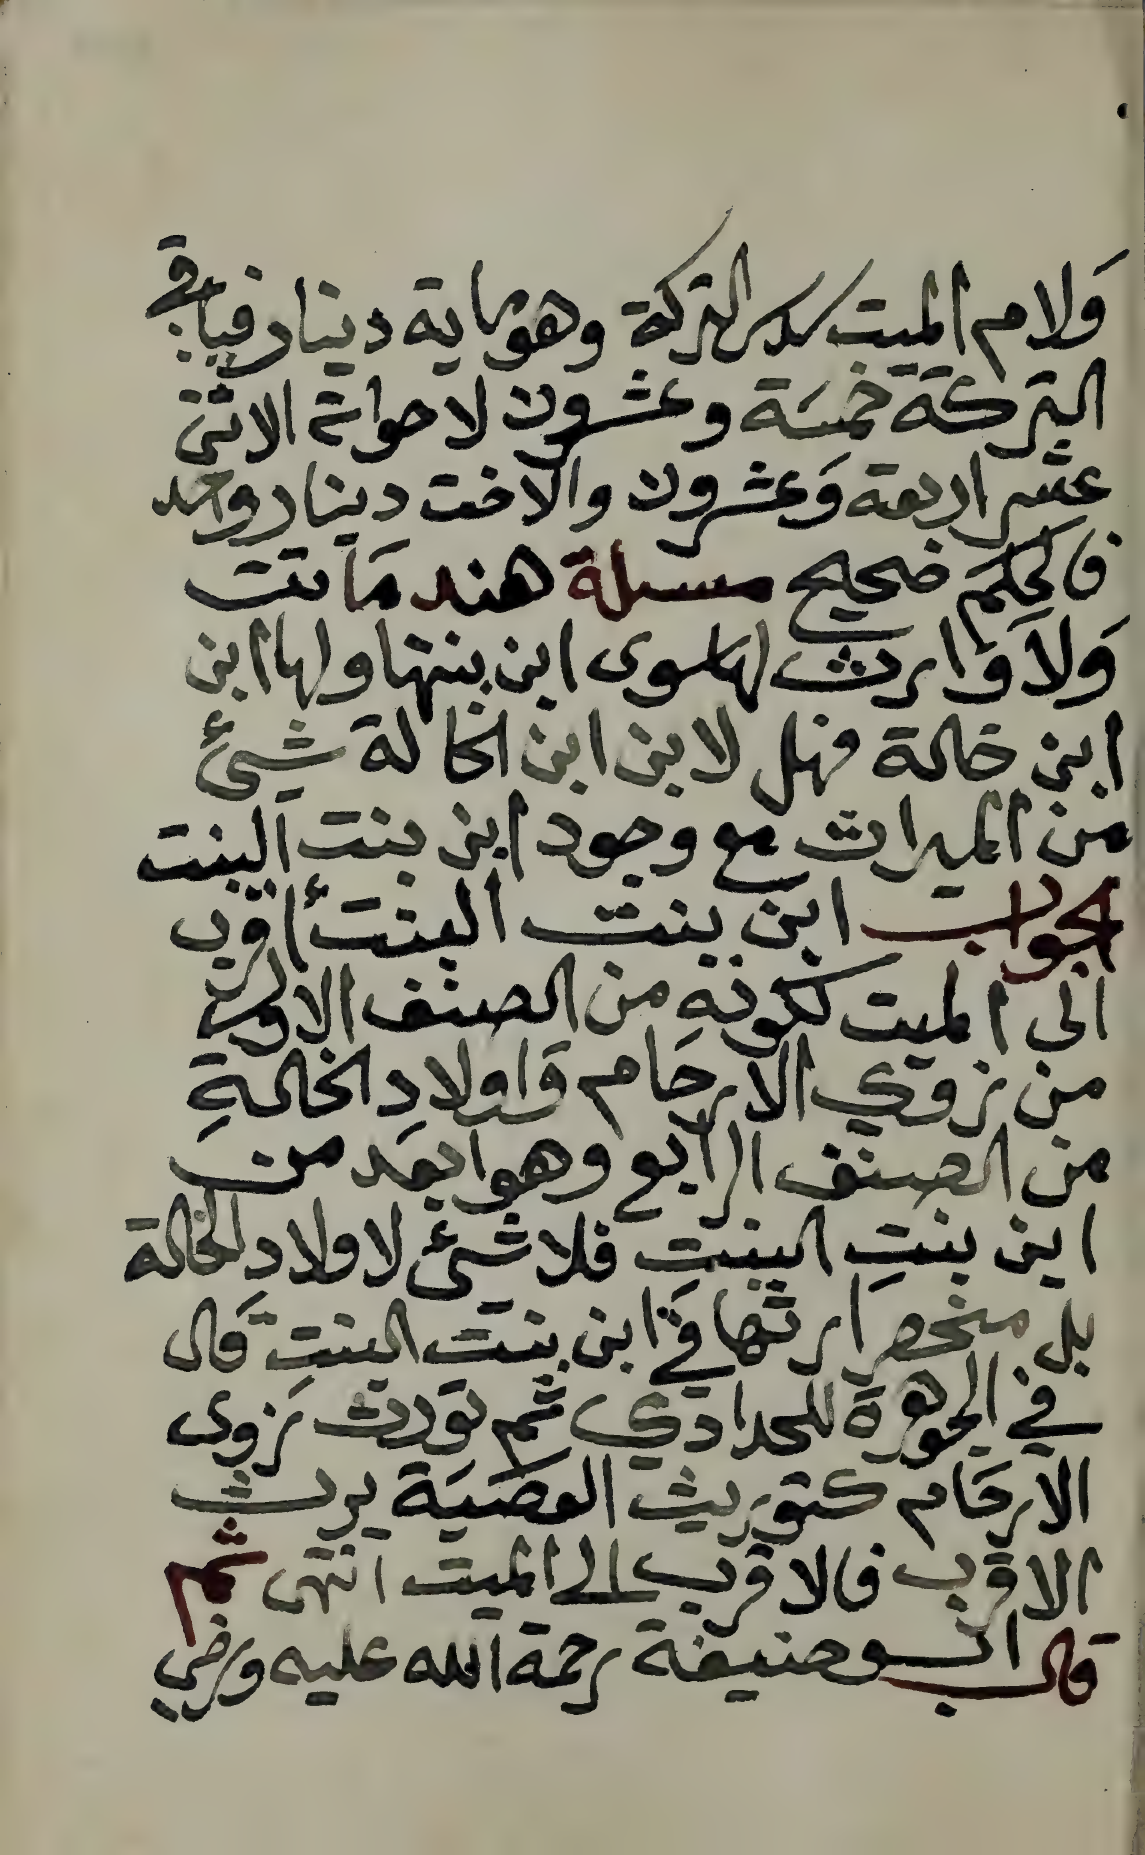 ولام الميت سدس التركة وهو ماية دينار فباقي
التركة خمسة وعشرون لاخواته الاثني
عشر اربعة وعشرون والاخت دينار واحد
فالحكم صحيح مسئلة هند ماتت
ولا وارث لها سوى ابن بنتها ولها ابن
ابن خالة فهل لابن ابن الخالة شيئ
من الميراث مع وجود ابن بنت البنت
الجواب ابن بنت البنت أقرب
الى الميت لكونه من الصنف الاول
من ذوي الارحام واولاد الخالة
من الصنف الرابع وهو ابعد من
ابن بنت البنت فلا شيئ لاولاد الخالة
بل منحصر ارثها في ابن بنت البنت قال
في الجوهرة للحدادي ثم تورث ذوى
الارحام كتوريث العصبة يرث
الاقرب فالاقرب الى الميت انتهى ثم
قال ابو حنيفة رحمة الله عليه ورضي